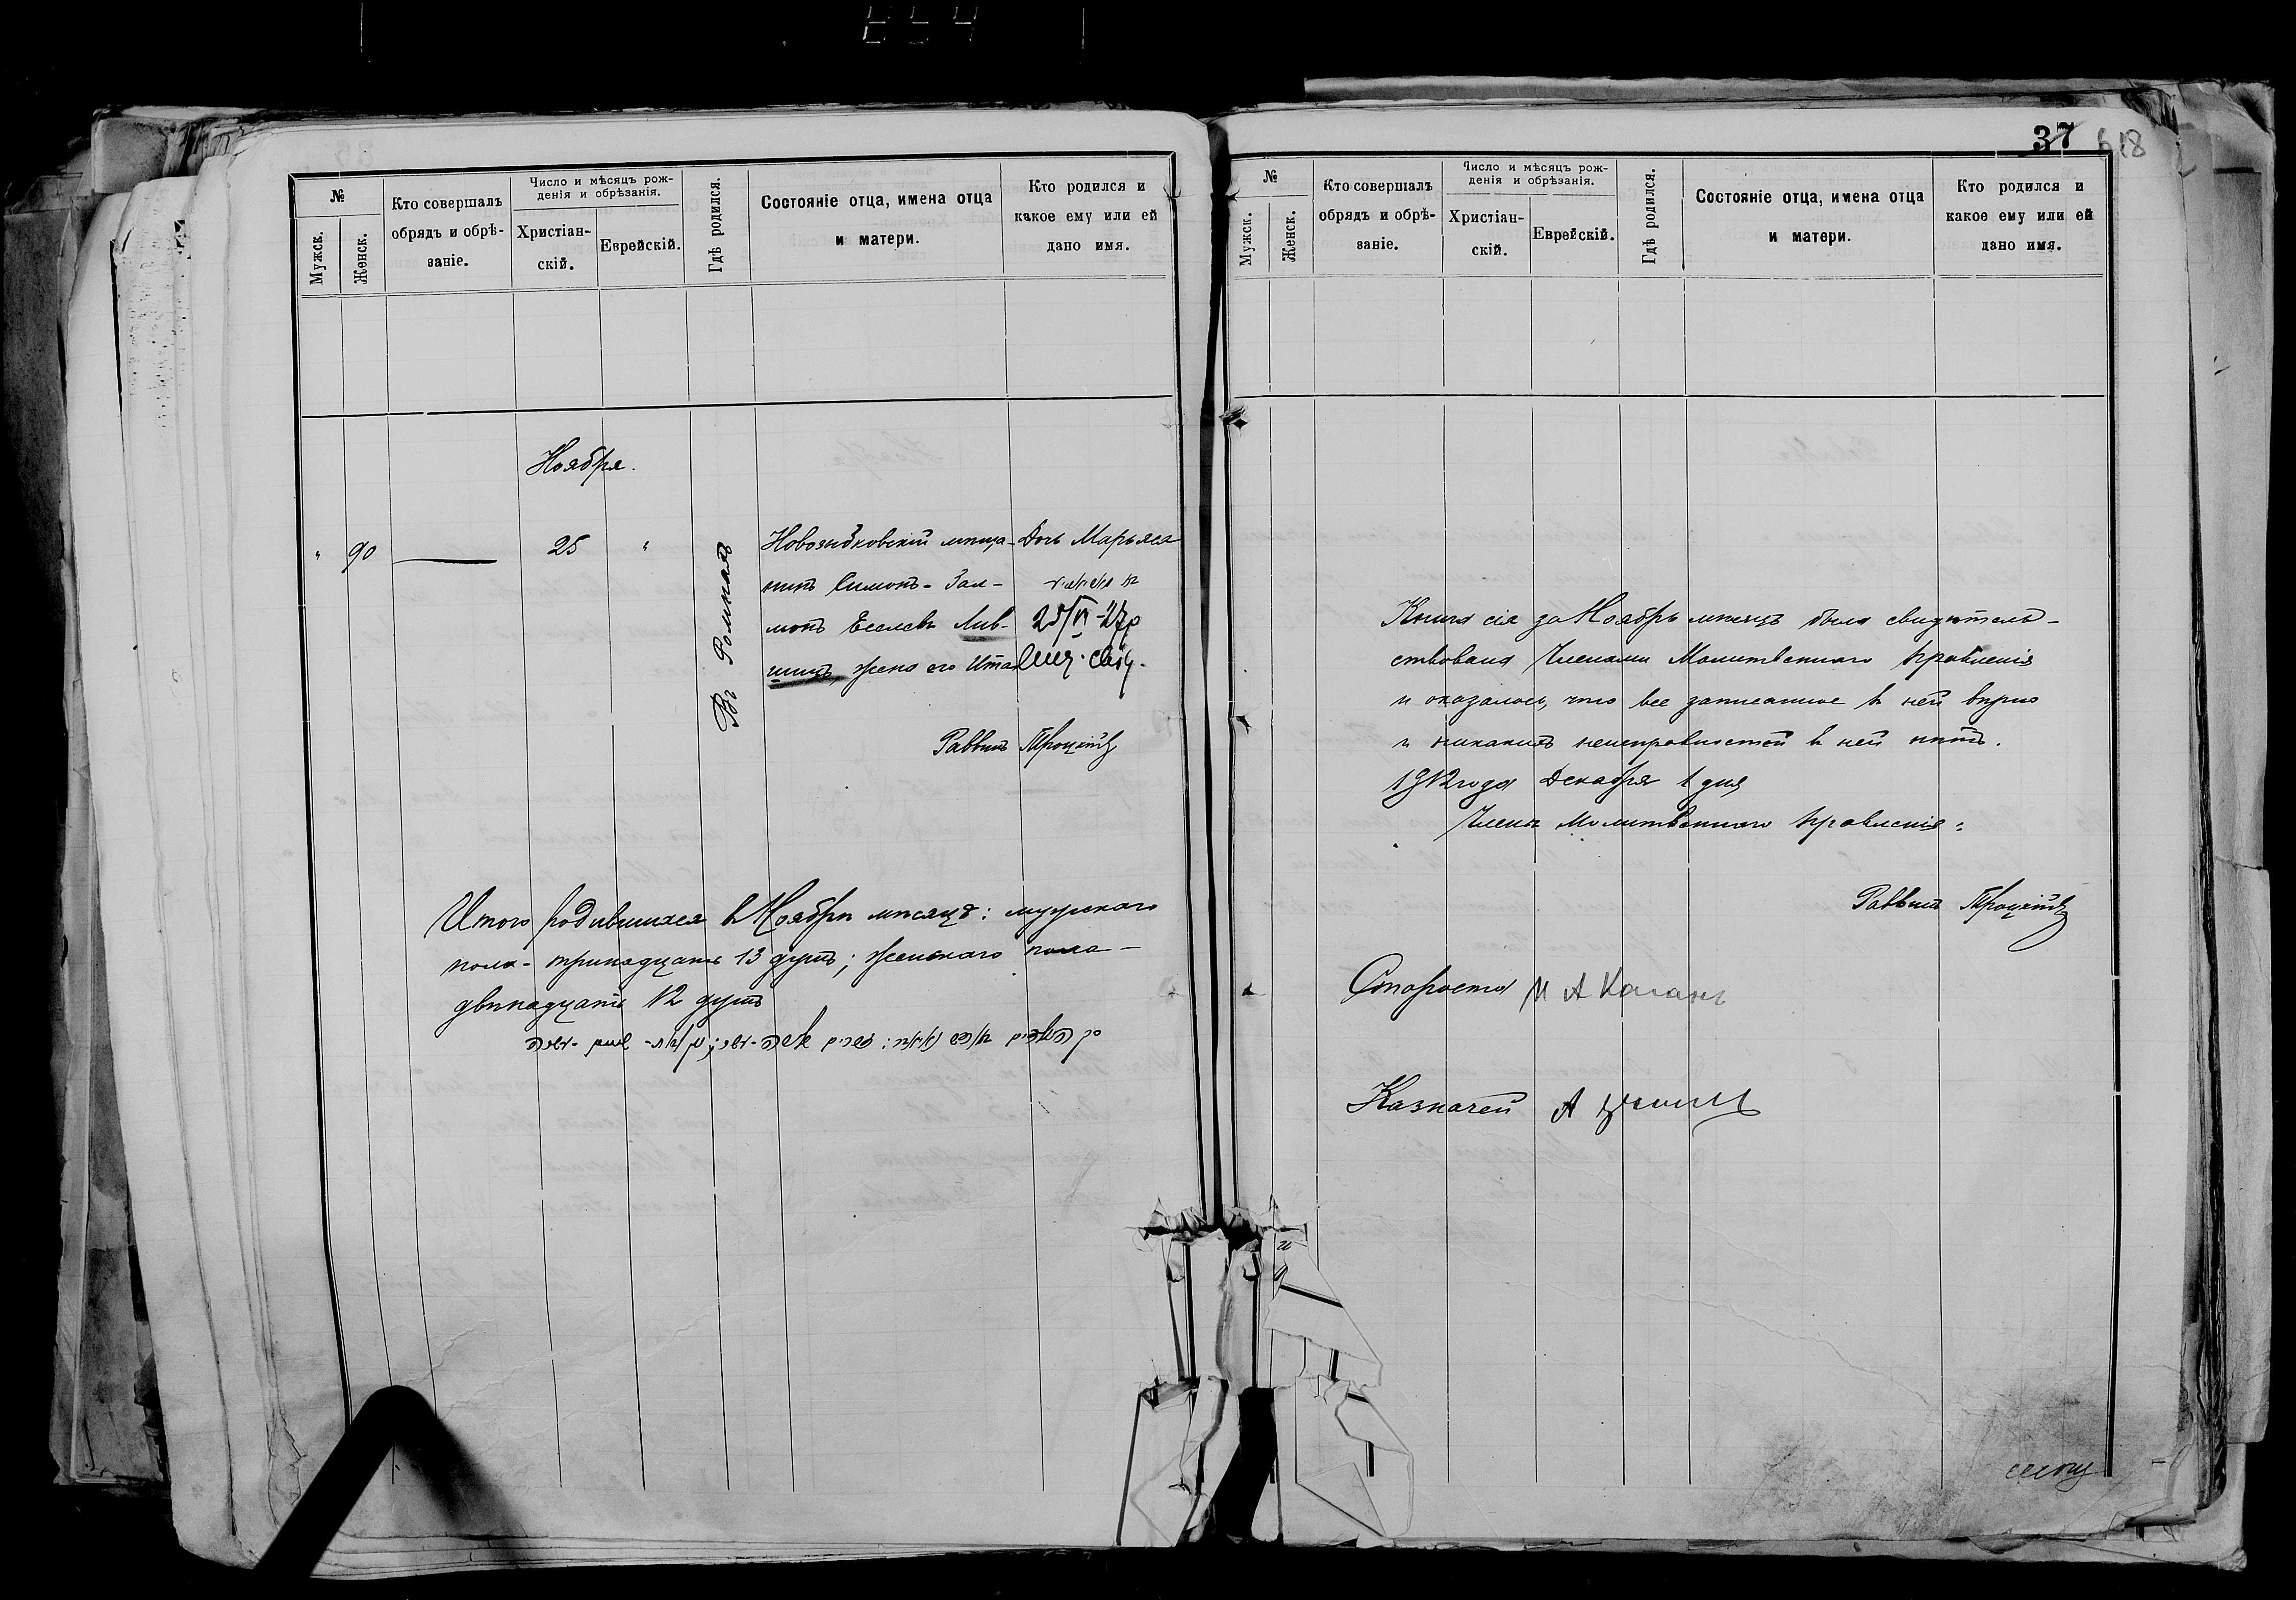 №
Мужск.
Женск.
Кто совершалъ
обрядъ и обрѣ-
заніе.
Число и мѣсяцъ рож-
денія и обрѣзанія.
Христіан-
скій.
Еврейскій.
Гдѣ родился.
Состояніе отца, имена отца
и матери.
Кто родился и
какое ему или ей
дано имя.
Ноября.
" 90 25 "
Въ Ромнахъ
Новозыбковскій мѣща-
нинъ Симонъ-Зал-
монъ Еселевъ Лив-
шицъ, жена его Итa
Дочь Марьяся
25/VI-27р
Раввинъ Троцкій
Итого родившихся въ Ноябрѣ мѣсяцѣ: мужскаго
пола - тринадцать 13 душъ; женскаго пола -
двѣнадцать 12 душъ
37
618
№
Мужск.
Женск.
Кто совершалъ
обрядъ и обрѣ-
заніе.
Число и мѣсяцъ рож-
денія и обрѣзанія.
Христіан-
скій.
Еврейскій.
Гдѣ родился.
Состояніе отца, имена отца
и матери.
Кто родился и
какое ему или ей
дано имя.
Книга сія за Ноябрь мѣсяцъ была свидѣтель-
ствована Членами Молитвеннаго Правленія
и оказалось, что все записанное въ ней вѣрно
и никакихъ неисправностей въ ней нѣтъ.
1912 года Декабря 1 дня
Члены Молитвеннаго Правленія:
Раввинъ Троцкій
Староста М А Каганъ
Казначей А